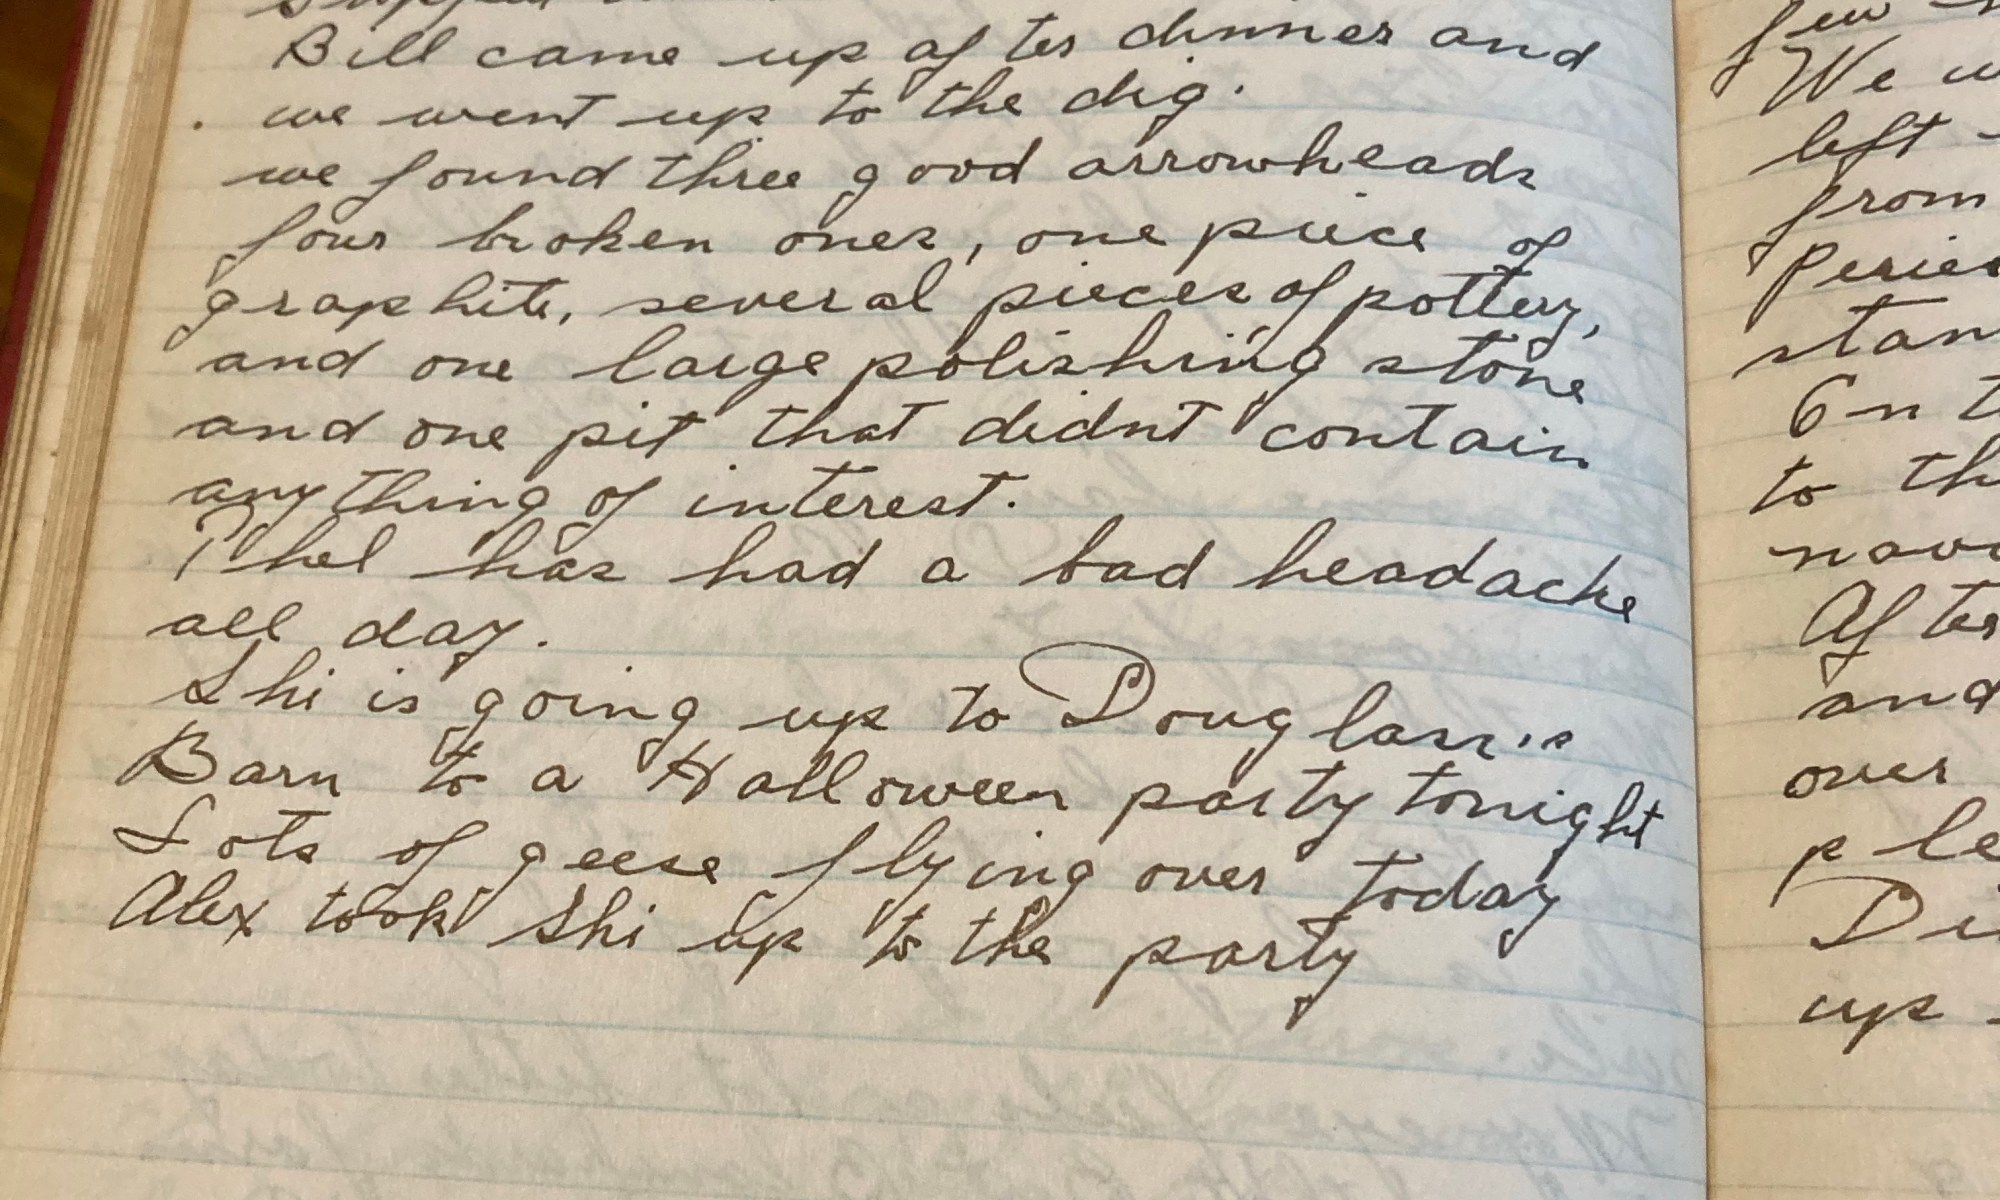 Bill came up after dinner and
. we went up to the dig.
we found three good arrowheads
four broken ones, one piece of
graphite, several pieces of pottery,
and one large polishing stone
and one pit that didnt contain
anything of interest.
Phel has had a bad headache
all day.
Shi is going up to Douglass's
Barn to a Halloween party tonight
Lots of geese flying over today
Alex took Shi up to the party
We
left
from
to
After
and
over
up